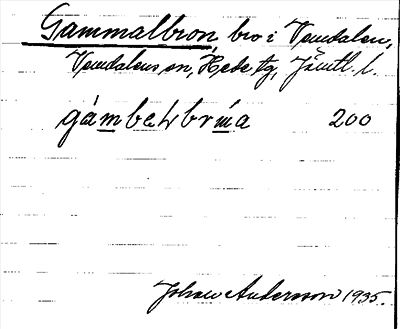 Gammalbron, bro i Vemdalen,
Vemdalens sn, Hede tg, Jämtl. l.
200
Johan Anderson 1935.